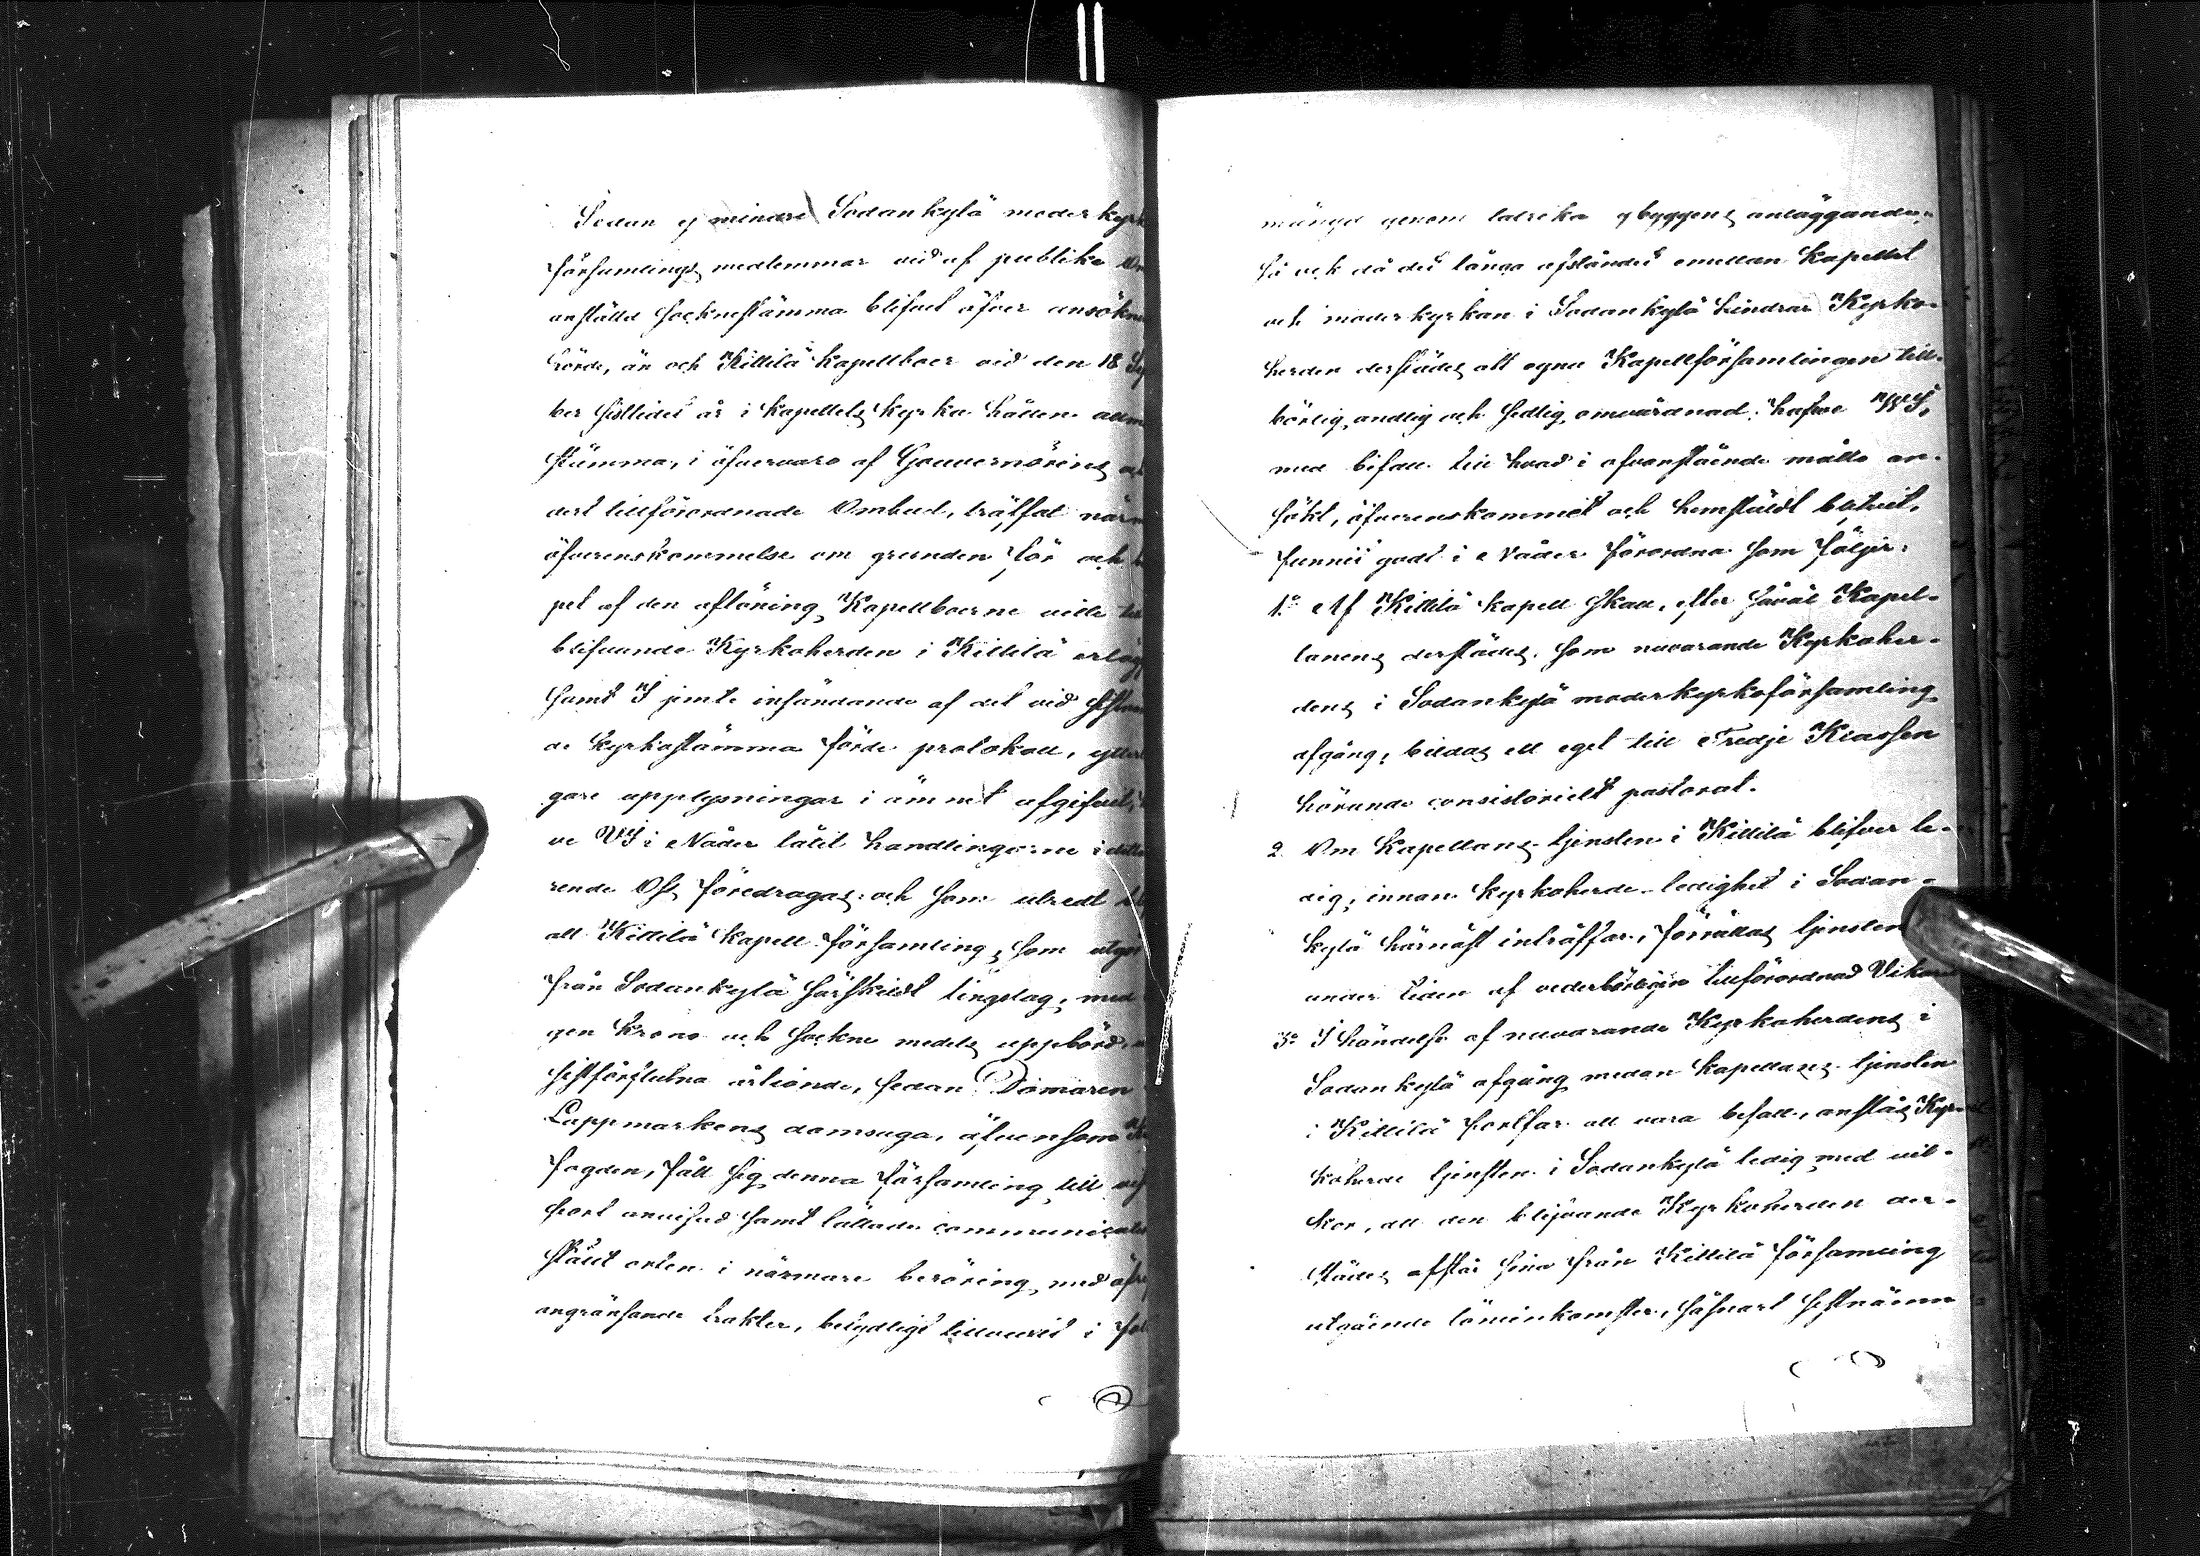 Sedan ej mindre Sodankylä moderkyrk
församlings medlemmar vid af publike
anställd sockenstämma blifvit öfver ansökn
hörde, än och Kittilä kapellboer vid den 18 Sep
ber sistlidet år i kapellets kyrka hållen allm
stämma, i öfvervaro af Gouvernörens
dert tillförordnade Ombud, träffat närm
öfverenskommelse om grunden för och
pet af den aflöning, Kapellboerne ville
blifvande Kyrkoherden i Kittilä erläg
samt I jemte insändande af det vid sistn
de kyrkostämma förde protokoll, ytter
gare upplysningar i ämnet afgifvit,
ve VI i Nåder låtit handlingarne i detta
rende Oss föredragas och som utredt
att Kittilä kapell församling, som utgör
från Sodankylä särskildt tingslag, med
gen Krono och sockne medels uppbörd,
sistförflutna årtionde, sedan Domaren
Lappmarkens domsaga, äfvensom
fogden, fått sig denna församling till
sort anvisad samt lättade communicat
ställt orten i närmare beröring med
angränsande trakter, betydligt tillvuxit i fol
mängd genom talrika nybyggens anläggande,
så och då det långa afståndet emellan Kapellet
och moderkyrkan i Sodankylä hindrar Kyrko-
herden derstädes att egna Kapellförsamlingen till-
börlig, andlig och sedlig, omvårdnad: hafve WI,
med bifall till hvad i ofvanstående måtto an-
sökt, öfverenskommet och hemstäldt blifvit,
funnit godt i Nåder förordna som följer:
1:o Af Kittilä kapell skall, efter såväl Kapel-
lanens derstädes, som nuvarande Kyrkoher-
dens i Sodankylä moderkyrkoförsamling
afgång, bildas ett eget till Tredje Klassen
hörande consistorielt pastorat.
2. Om Kapellans tjensten i Kittilä blifver le-
dig, innan kyrkoherde ledighet i Sodan-
kylä härnäst inträffar, förrättas tjensten
under tiden af vederbörligen tillförordnad Vikarie
3:o I händelse af nuvarande Kyrkoherdens i
Sodankylä afgång medan Kapellans tjensten
i Kittilä fortfar att vara besatt, anslås Kyr-
koherde tjensten i Sodankylä ledig med vil-
kor, att den blifvande Kyrkoherden der-
städes afstår sina från Kittilä församling
utgående löninkomster, såsnart sistnämn